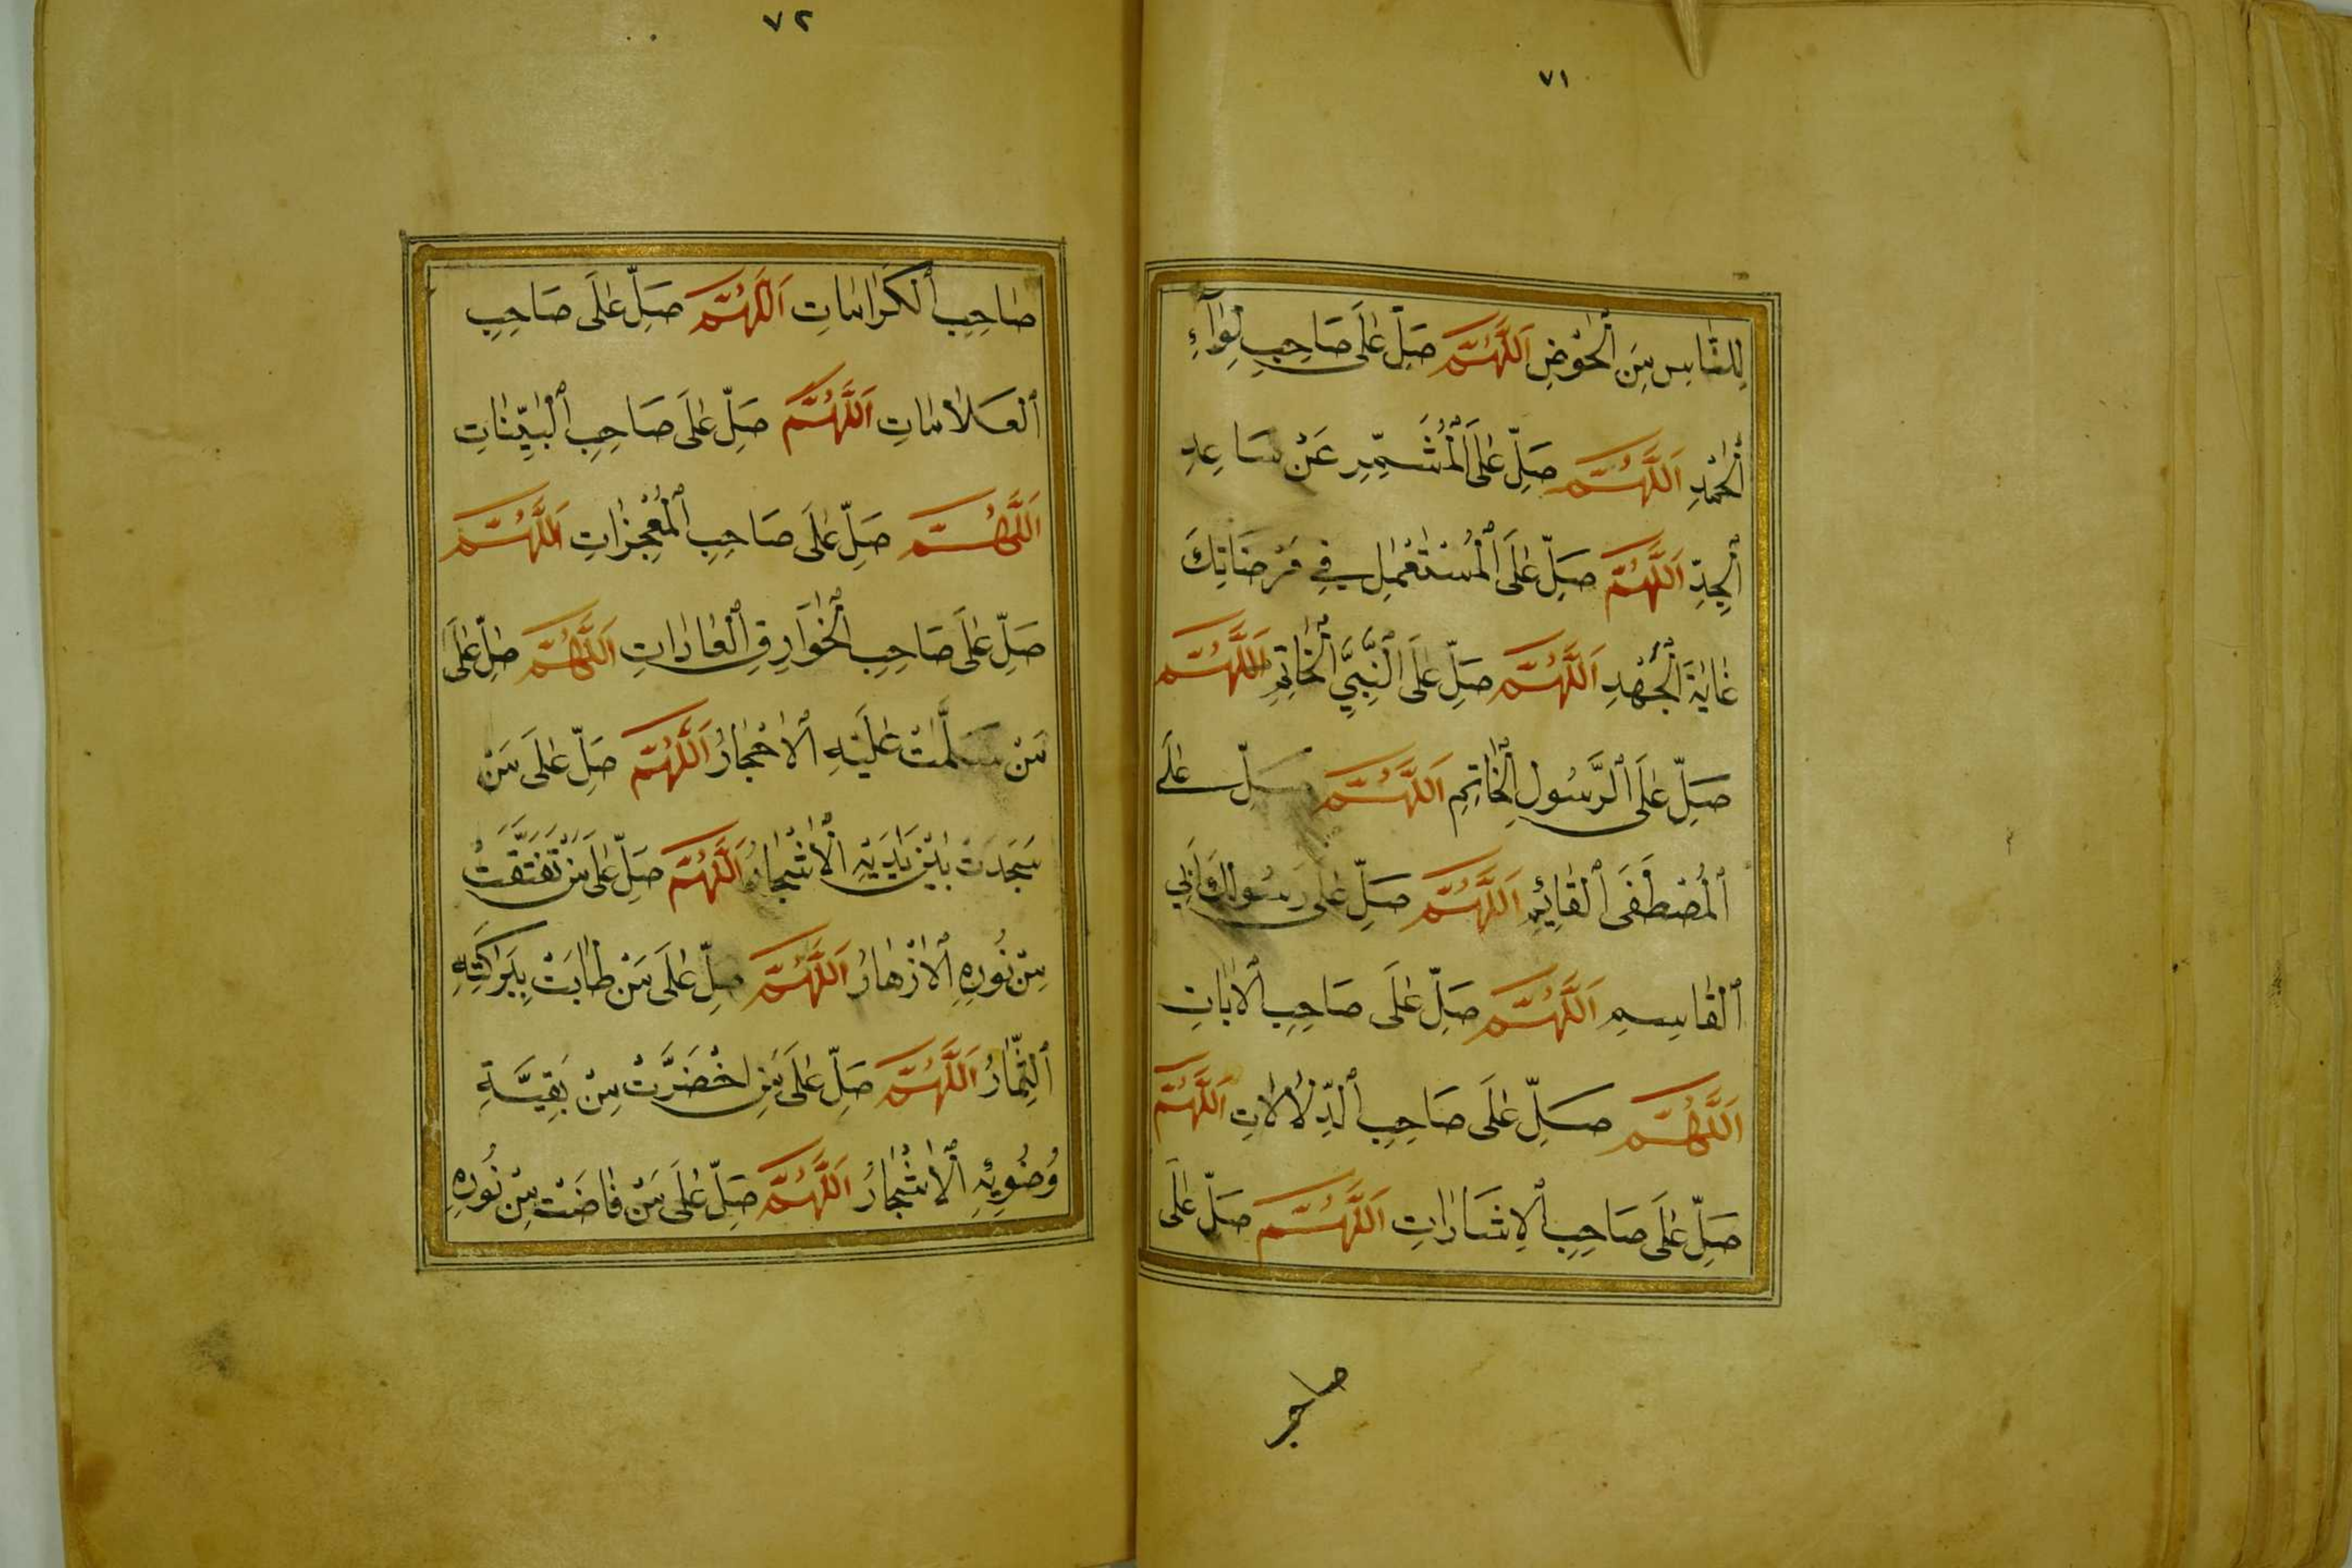 ٧١
لِلنَّاسِ مِنَ الْحَوْضِ اَللّٰهُمَّ صَلِّ عَلَى صَاحِبِ لِوَآءِ
الْحَمْدِ اَللّٰهُمَّ صَلِّ عَلَى الْمُشَمِّرِ عَنْ سَاعِدِ
الْجِدِّ اَللّٰهُمَّ صَلِّ عَلَى الْمُسْتَعْمِلِ فِي مَرْضَاتِكَ
غَايَةَ الْجُهْدِ اَللّٰهُمَّ صَلِّ عَلَى النَّبِيِّ الْخَاتِمِ اَللّٰهُمَّ
صَلِّ عَلَى الرَّسُولِ الْخَاتِمِ اَللّٰهُمَّ صَلِّ عَلَى
الْمُصْطَفَى الْقَائِمِ اَللّٰهُمَّ صَلِّ عَلَى رَسُولِكَ اَبِي
الْقَاسِمِ اَللّٰهُمَّ صَلِّ عَلَى صَاحِبِ الْاٰيَاتِ
اَللّٰهُمَّ صَلِّ عَلَى صَاحِبِ الدِّلَالَاتِ اَللّٰهُمَّ
صَلِّ عَلَى صَاحِبِ الْاِشَارَاتِ اَللّٰهُمَّ صَلِّ عَلَى
٧٢
صَاحِبِ الْكَرَامَاتِ اَللّٰهُمَّ صَلِّ عَلَى صَاحِبِ
الْعَلَامَاتِ اَللّٰهُمَّ صَلِّ عَلَى صَاحِبِ الْبَيِّنَاتِ
اَللّٰهُمَّ صَلِّ عَلَى صَاحِبِ الْمُعْجِزَاتِ اَللّٰهُمَّ
صَلِّ عَلَى صَاحِبِ الْخَوَارِقِ الْعَادَاتِ اَللّٰهُمَّ صَلِّ عَلَى
مَنْ سَلَّمَتْ عَلَيْهِ الْاَحْجَارُ اَللّٰهُمَّ صَلِّ عَلَى مَنْ
سَجَدَتْ بَيْنَ يَدَيْهِ الْاَشْجَارُ اَللّٰهُمَّ صَلِّ عَلَى مَنْ تَفَتَّقَتْ
مِنْ نُورِهِ الْاَزْهَارُ اَللّٰهُمَّ صَلِّ عَلَى مَنْ طَابَتْ بِبَرَكَتِهِ
الثِّمَارُ اَللّٰهُمَّ صَلِّ عَلَى مَنِ اخْضَرَّتْ مِنْ بَقِيَّةِ
وُضُوئِهِ الْاَشْجَارُ اَللّٰهُمَّ صَلِّ عَلَى مَنْ فَاضَتْ مِنْ نُورِهِ